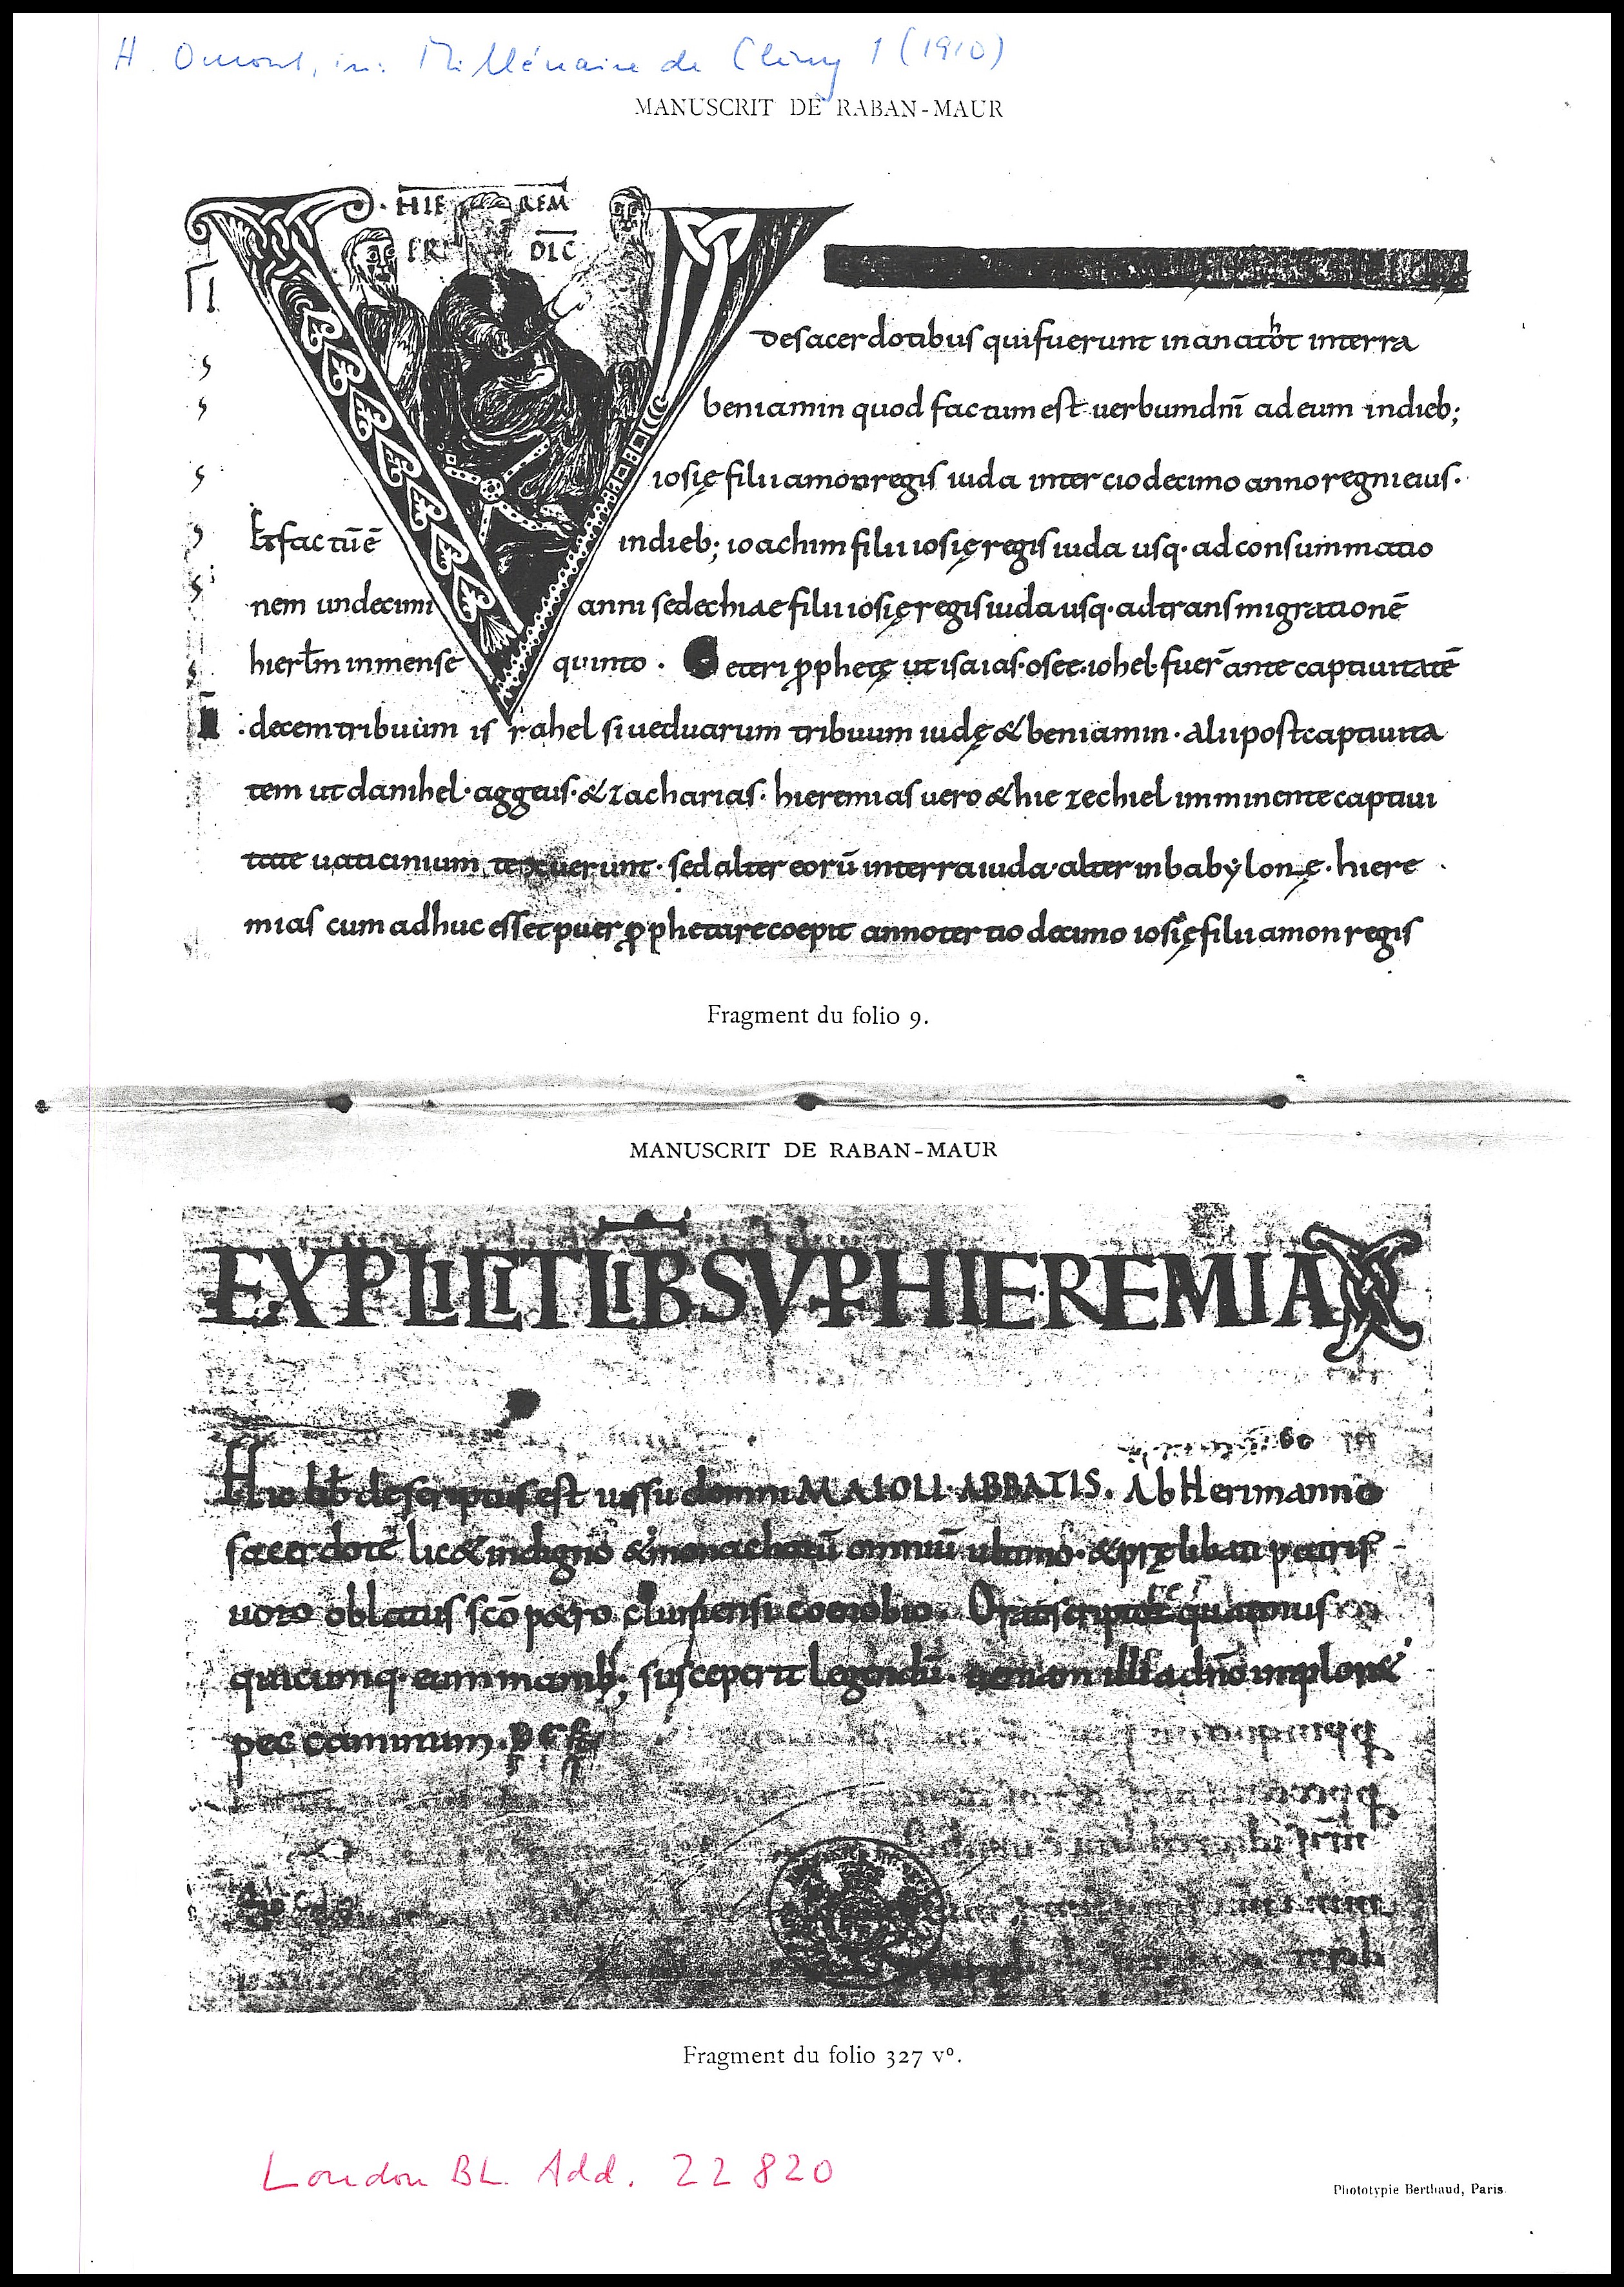 H. Omont, in: Millénaire de Cluny 1 (1910)
MANUSCRIT DE RABAN-MAUR
HIE REM
DIC
De sacerdotibus qui fuerunt in anatħ interra
beniamin quod factum est uerbum dn̄i ad eum indieb;
iosię filii amon regis iuda intertio decimo anno regni eius.
Et factū ē indieb; ioachim filii iosię regis iuda usq· ad consummatio
nem undecimi anni sedechiae filii iosię regis iuda usq· ad transmigrationē
hierłm inmense quinto. Ceteri ꝓphetę ut isaias· osee· iohel· fuer̄ ante captiuitatē
decem tribuum israhel siue duarum tribuum iudę & beniamin· alii post captiuita
tem ut danihel· aggeus· & zacharias· hieremias uero & hiezechiel imminente captiui
tate uaticinium texuerunt· sed alter eorū interra iuda· alter in babylonę· hiere
mias cum adhuc esset puer ꝓphetare coepit anno tertio decimo iosię filii amon regis
Fragment du folio 9.
MANUSCRIT DE RABAN-MAUR
EXPLICIT LIB SUP HIEREMIA
Hic lib descriptus est iussu domni MAIOLI ABBATIS. Ab Herimanno
sacerdote lic& indigno & monachorū omniū ultimo· & pręlibati patris
uoto oblatus scō p&ro cluniensi coenobio. Orat scriptor quatinus
quicumq· eum manib; susceperit legendū· ueniam illi a dn̄o implor&
peccaminum.
Fragment du folio 327 vº.
London BL Add. 22 820
Phototypie Berthaud, Paris